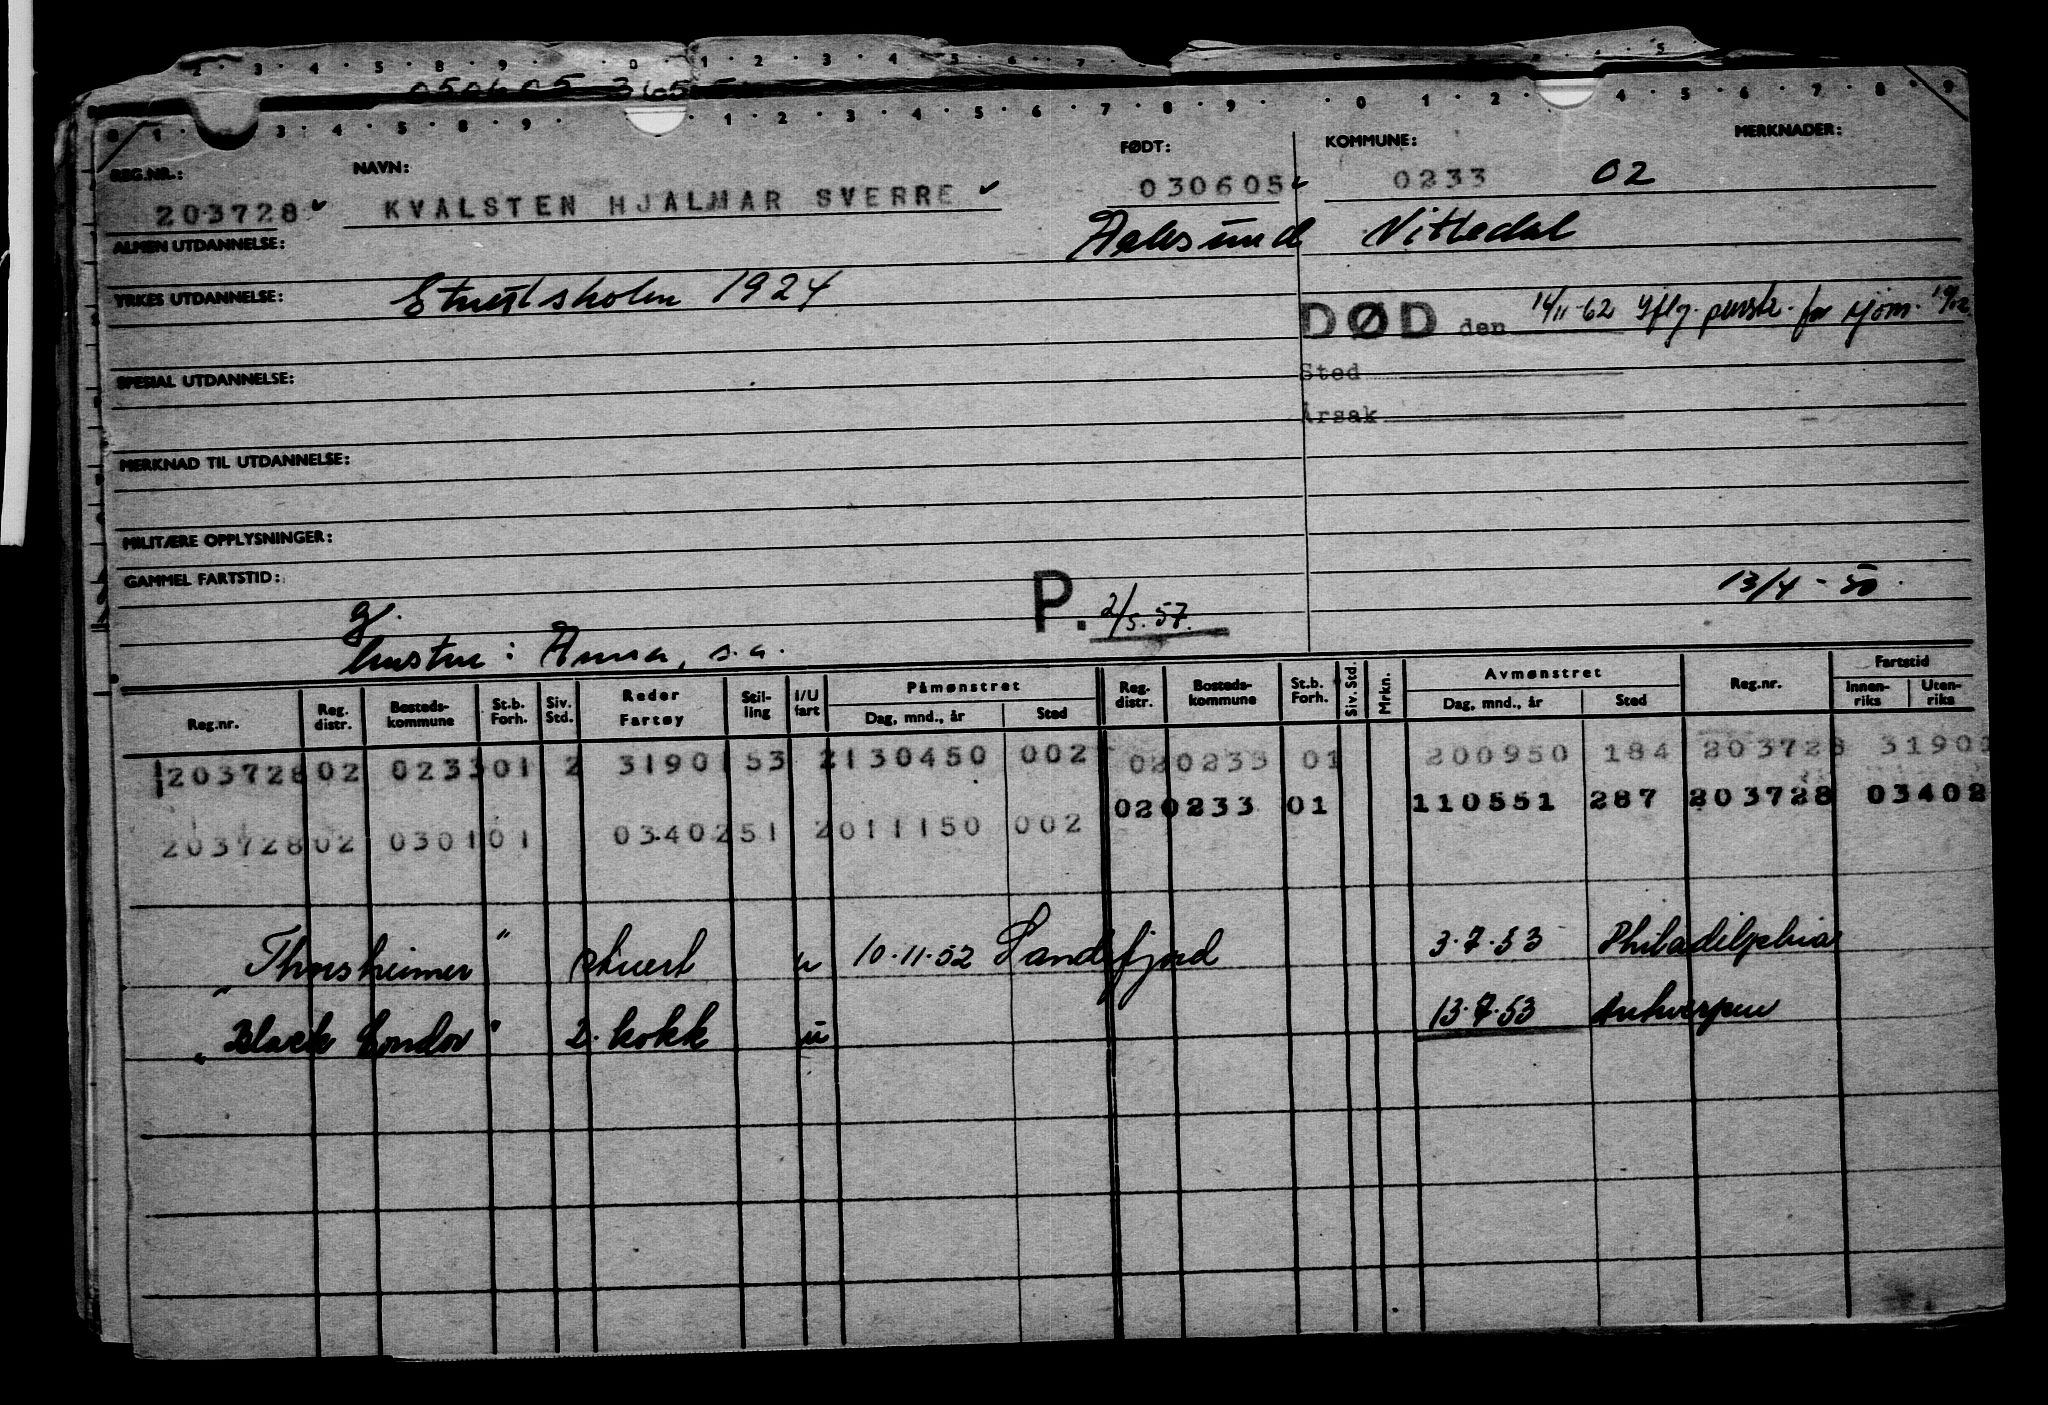 050605 365
REG.NR.: NAVN: FØDT: KOMMUNE: MERKNADER:
203728 KVALSTEN HJALMAR SVERRE 030605 0233 02
ALMEN UTDANNELSE: Aalesund Nittedal
YRKES UTDANNELSE: Stuertskolen 1924
DØD den 14/11-62 iflg. persk. for sjøm. 19/12
Sted
Årsak
SPESIAL UTDANNELSE:
MERKNAD TIL UTDANNELSE:
MILITÆRE OPPLYSNINGER:
GAMMEL FARTSTID:
13/4-50.
P. 2/5.57.
g.
hustru: Anna, s.a.
Reg.nr. Reg. distr. Bosteds-kommune St.b. Forh. Siv. Std. Reder Fartøy Stil-ling I/U fart Påmønstret Dag, mnd., år Sted Reg. distr. Bosteds-kommune St.b. Forh. Siv. Std. Mrkn. Avmønstret Dag, mnd., år Sted Reg.nr. Fartstid Innen-riks Uten-riks
203728 02 0233 01 2 31901 53 2 130450 002 02 0233 01 200950 184 203728 31901
02 0233 01 110551 287 203728 03402
203728 02 0301 01 03402 51 2 011150 002
" Thorsheimer " stuert u 10.11.52 Sandefjord 3.7.53 Philadelphia
" Black Condor " 2. kokk u 13.7.53 Antwerpen